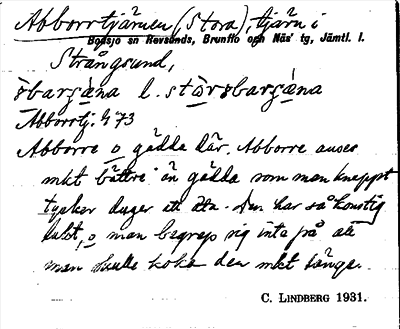 Abborrtjärnen (Stora), tjärn i
Bodsjö sn Revsunds, Brunflo och Näs' tg, Jämtl. l.
Strångsund,
Abborrtj. G 73
Abborre o gädda där. Abborre anses
mkt bättre än gädda som man knappt
tycker duger att äta. Den har så konstig
, o man begrep sig inte på att
man skulle koka den mkt länge.
C. LINDBERG 1931.